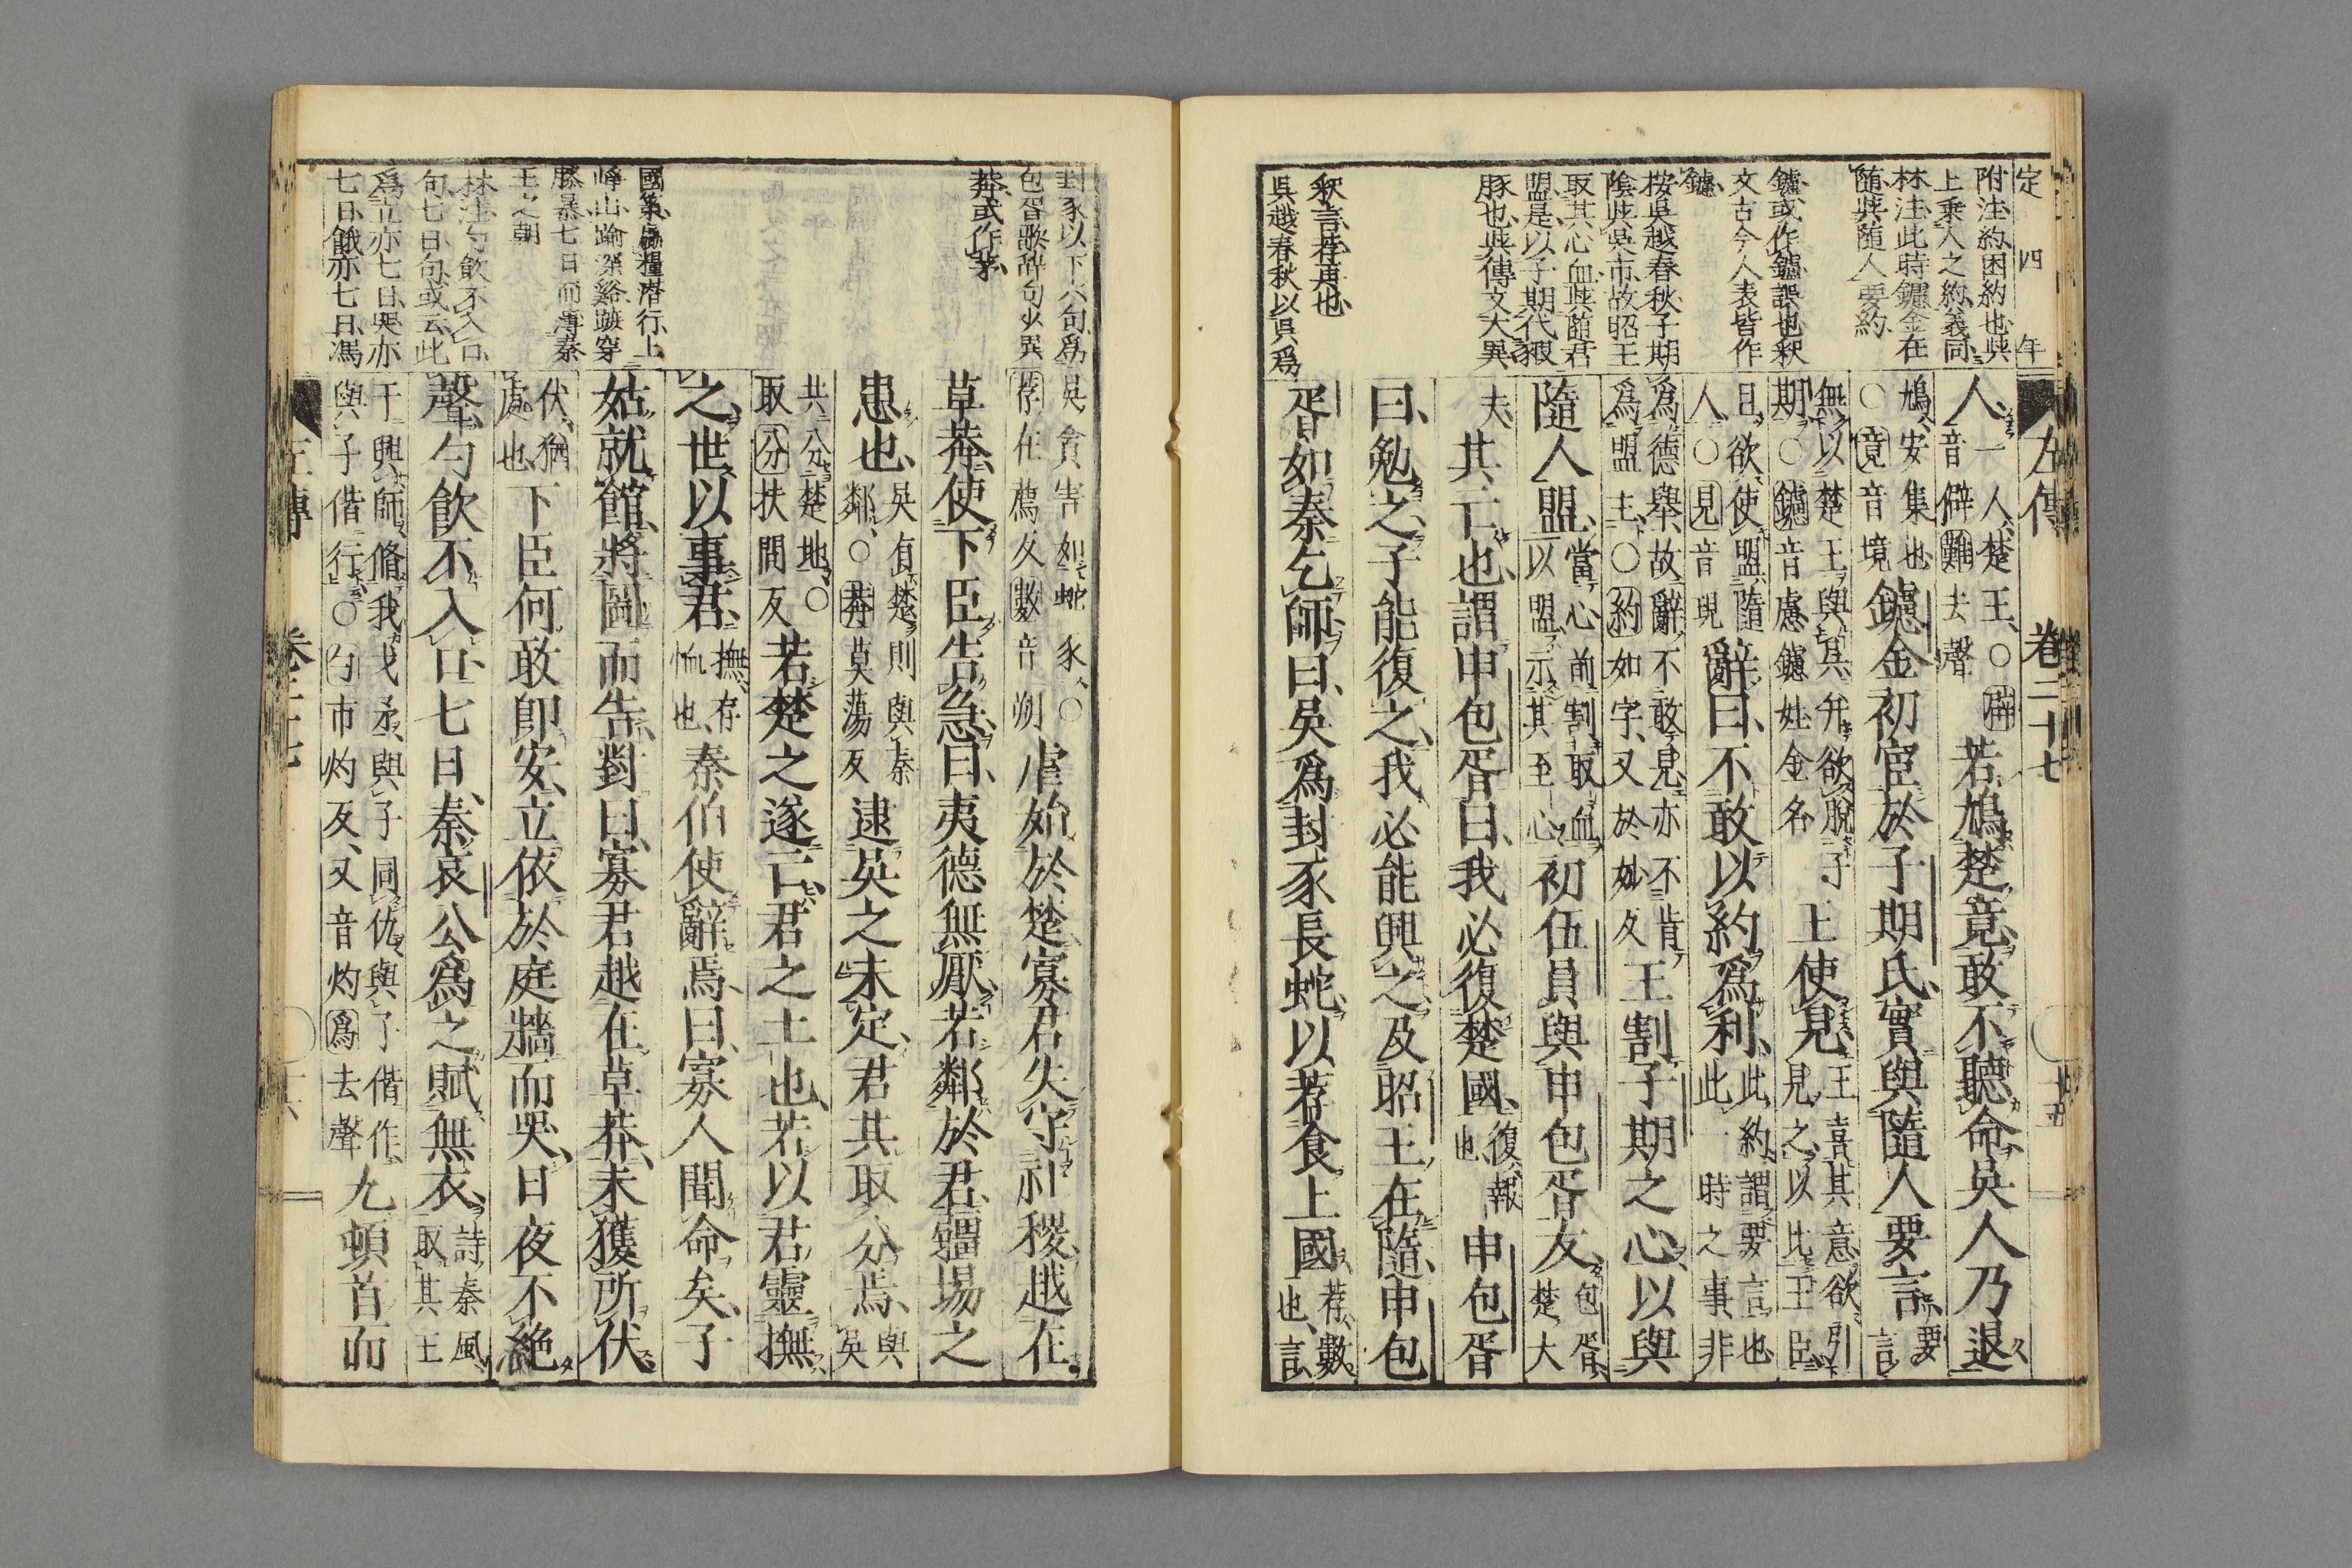 定四年
附注約困約也與
上乘人之約義同
林注此時鑢金在
隨與隨人要約
鑢或作鑪誤也釈
文古今人表皆作
鑢
按吳越春秋子期
陰與吳市故昭王
取其心血與隨君
盟是以子期代猳
豚也與傳文大異
釈言荐再也
吳越春秋以吳爲
左傳 卷二十七 十五
人一人楚王○辟音僻難去聲若鳩楚竟敢不聽命吳人乃退
鳩安集也○竟音境鑢金初宦於子期氏實與隨人要言要言
無以楚王與吳幷欲脫子期○鑢音慮鑢姓金名王使見王喜其意欲引見之以比王臣
且欲使盟隨人○見音現辭曰不敢以約爲利此約謂要言也此一時之事非
爲德舉故辭不敢見亦不肯爲盟主○約如字又於妙反王割子期之心以與
隨人盟當心前割取血以盟示其至心初伍員與申包胥友包胥楚大
夫其亡也謂申包胥曰我必復楚國復報也申包胥
曰勉之子能復之我必能興之及昭王在隨申包
胥如秦乞師曰吳爲封豕長蛇以荐食上國荐數也言
封豕以下六句爲
包胥歌辞句少異
莽或作茅
國策贏糧潛行上
崢山踰深谿蹠穿
膝暴七日而薄秦
王之朝
林注勺飲不入口
句七日句或云此
爲立亦七日哭亦
七日餓亦七日馮
吳貪害如蛇豕○荐在薦反數音朔虐始於楚寡君失守社稷越在
草莽使下臣告急曰夷德無厭若鄰於君疆埸之
患也吳有楚則與秦鄰○莽莫蕩反逮吳之未定君其取分焉與吳
共分楚地○取分扶問反若楚之遂亡君之土也若以君靈撫
之世以事君撫存恤也秦伯使辭焉曰寡人聞命矣子
姑就館將圖而告對曰寡君越在草莽未獲所伏
伏猶處也下臣何敢即安立依於庭牆而哭日夜不絶
聲勺飲不入口七日秦哀公爲之賦無衣詩秦風取其王
于興師脩我戈矛與子同仇與子偕作與子偕行○勺市灼反又音灼爲去聲九頓首而
左傳 卷二十七 十六